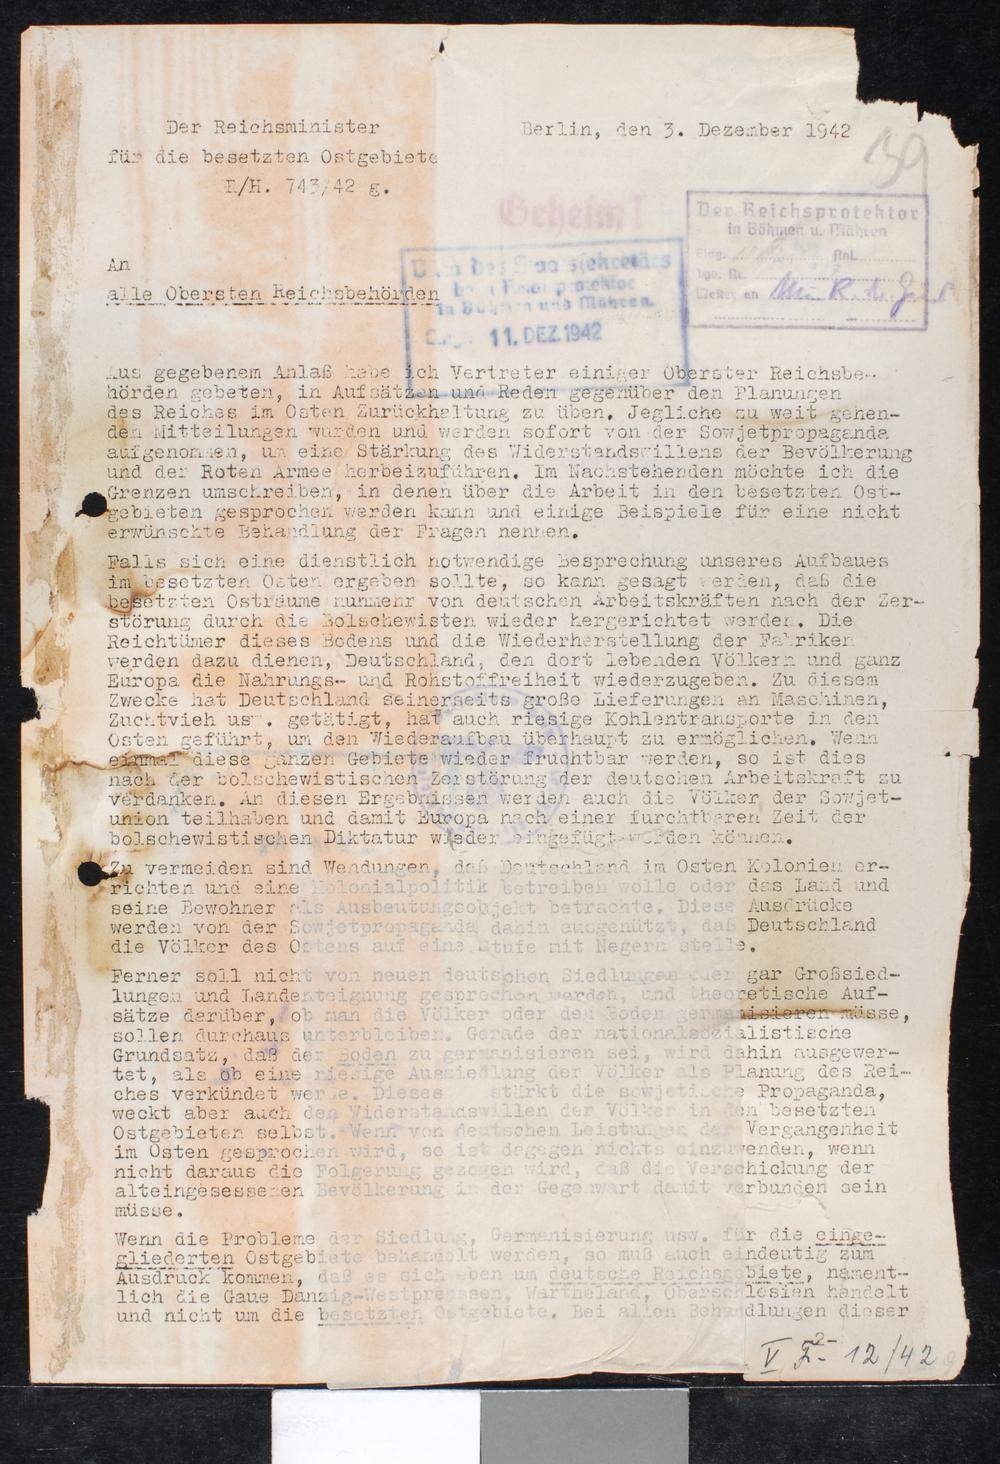 Der Reichsminister
für die besetzten Ostgebiete
R/H. 743/42 g.
Berlin, den 3. Dezember 1942
39
Geheim!
Der Reichsprotektor
in Böhmen u. Mähren
Anl.
des Staatssekretärs
beim Reichsprotektor
in Böhmen und Mähren
11. DEZ. 1942
An
alle Obersten Reichsbehörden
Aus gegebenem Anlaß habe ich Vertreter einiger Oberster Reichsbe-
hörden gebeten, in Aufsätzen und Reden gegenüber den Planungen
des Reiches im Osten Zurückhaltung zu üben. Jegliche zu weit gehen-
den Mitteilungen wurden und werden sofort von der Sowjetpropaganda
aufgenommen, um eine Stärkung des Widerstandswillens der Bevölkerung
und der Roten Armee herbeizuführen. Im Nachstehenden möchte ich die
Grenzen umschreiben, in denen über die Arbeit in den besetzten Ost-
gebieten gesprochen werden kann und einige Beispiele für eine nicht
erwünschte Behandlung der Fragen nennen.
Falls sich eine dienstlich notwendige Besprechung unseres Aufbaues
im besetzten Osten ergeben sollte, so kann gesagt werden, daß die
besetzten Osträume nunmehr von deutschen Arbeitskräften nach der Zer-
störung durch die Bolschewisten wieder hergerichtet werden. Die
Reichtümer dieses Bodens und die Wiederherstellung der Fabriken
werden dazu dienen, Deutschland, den dort lebenden Völkern und ganz
Europa die Nahrungs- und Rohstoffreiheit wiederzugeben. Zu diesem
Zwecke hat Deutschland seinerseits große Lieferungen an Maschinen,
Zuchtvieh usw. getätigt, hat auch riesige Kohlentransporte in den
Osten geführt, um den Wiederaufbau überhaupt zu ermöglichen. Wenn
einmal diese ganzen Gebiete wieder fruchtbar werden, so ist dies
nach der bolschewistischen Zerstörung der deutschen Arbeitskraft zu
verdanken. An diesen Ergebnissen werden auch die Völker der Sowjet-
union teilhaben und damit Europa nach einer furchtbaren Zeit der
bolschewistischen Diktatur wieder eingefügt werden können.
Zu vermeiden sind Wendungen, daß Deutschland im Osten Kolonien er-
richten und eine Kolonialpolitik betreiben wolle oder das Land und
seine Bewohner als Ausbeutungsobjekt betrachte. Diese Ausdrücke
werden von der Sowjetpropaganda dahin ausgenützt, daß Deutschland
die Völker des Ostens auf eine Stufe mit Negern stelle.
Ferner soll nicht von neuen deutschen Siedlungen oder gar Großsied-
lungen und Landenteignung gesprochen werden, und theoretische Auf-
sätze darüber, ob man die Völker oder den Boden germanisieren müsse,
sollen durchaus unterbleiben. Gerade der nationalsozialistische
Grundsatz, daß der Boden zu germanisieren sei, wird dahin ausgewer-
tet, als ob eine riesige Aussiedlung der Völker als Planung des Rei-
ches verkündet werde. Dieses stärkt die sowjetische Propaganda,
weckt aber auch den Widerstandswillen der Völker in den besetzten
Ostgebieten selbst. Wenn von deutschen Leistungen der Vergangenheit
im Osten gesprochen wird, so ist dagegen nichts einzuwenden, wenn
nicht daraus die Folgerung gezogen wird, daß die Verschickung der
alteingesessenen Bevölkerung in der Gegenwart damit verbunden sein
müsse.
Wenn die Probleme der Siedlung, Germanisierung usw. für die einge-
gliederten Ostgebiete behandelt werden, so muß auch eindeutig zum
Ausdruck kommen, daß es sich eben um deutsche Reichsgebiete, nament-
lich die Gaue Danzig-Westpreussen, Wartheland, Oberschlesien handelt
und nicht um die besetzten Ostgebiete. Bei allen Behandlungen dieser
-2-
12/42